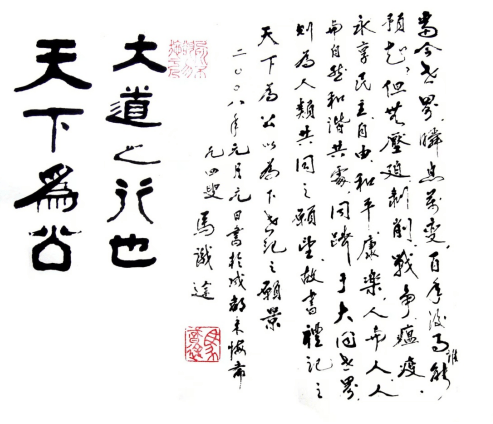 大道之行也
天下為公
當今世界，瞬息萬變，百年後事，誰能
預，但無壓迫剝削，戰爭瘟疫，
永享民主自由，和平康樂，人與人人
與自然和諧共處，同躋于大同世界，
則為人類共同之願望，故書禮記之
天下為公以為下世紀之願景
二〇〇八年元月元日書於成都未悔齋
九四叟 馬識途